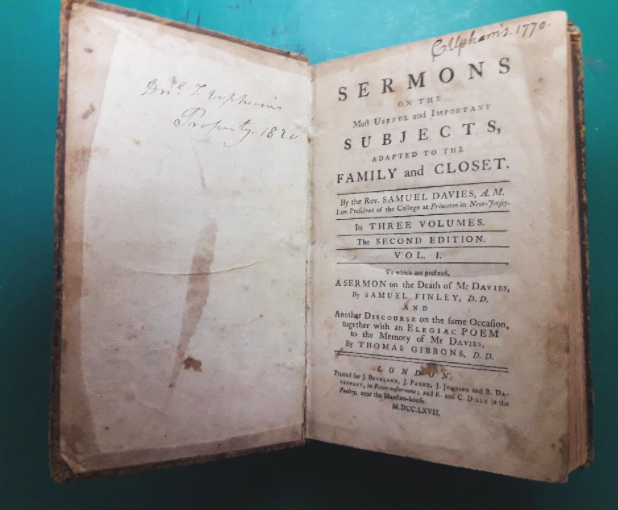 Jno. T. Upham's
Property. 1820
C Upham's. 1770.
SERMONS
ON THE
Most USEFUL and IMPORTANT
SUBJECTS,
ADAPTED TO THE
FAMILY and CLOSET.
By the Rev. SAMUEL DAVIES, A. M.
Late President of the College at Princeton in New-Jersey.
In THREE VOLUMES.
The SECOND EDITION.
VOL. I.
To which are prefixed,
A SERMON on the Death of Mr DAVIES,
By SAMUEL FINLEY, D. D.
AND
Another DISCOURSE on the same Occasion,
together with an ELEGIAC POEM
to the Memory of Mr DAVIES,
By THOMAS GIBBONS, D. D.
LONDON:
Printed for J. BUCKLAND, J. PAYNE, J. JOHNSON and B. DA-
VENPORT, in Pater-noster-row; and E. and C. DILLY in the
Poultry, near the Mansion-house.
M.DCC.LXVII.